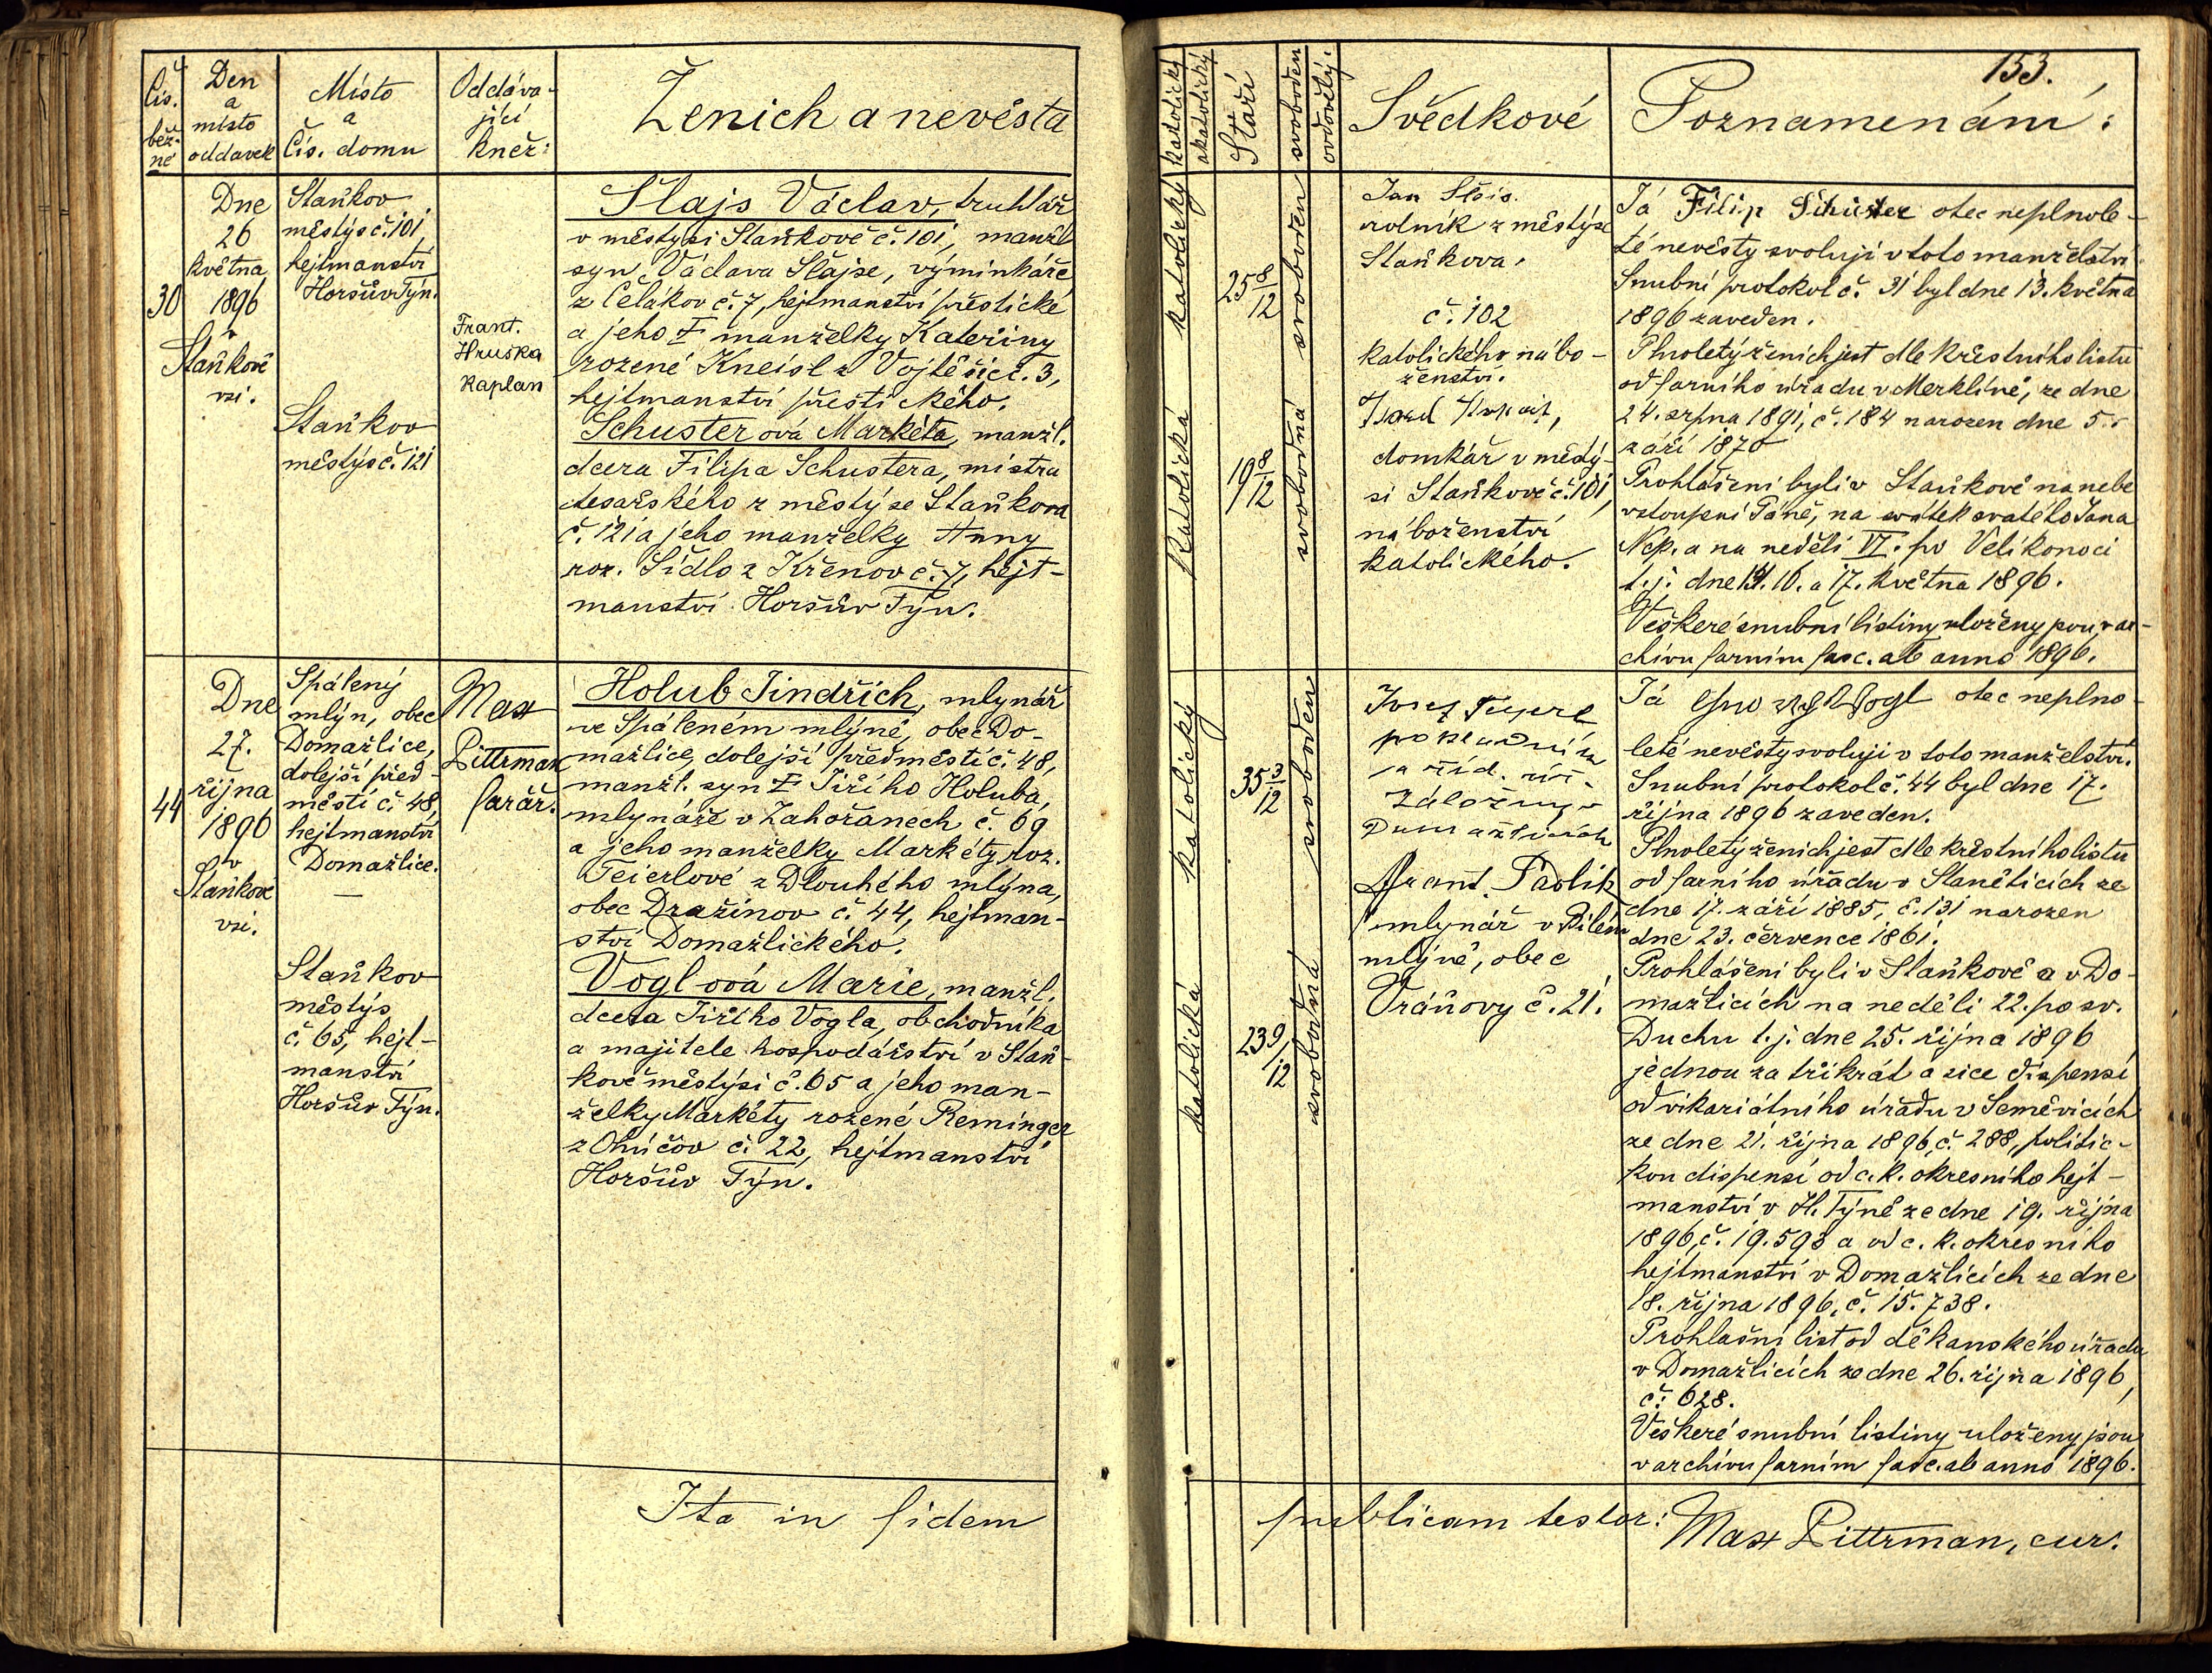 Čís. běž-né
Den a místo oddavek
Místo a Čís. domu
Oddáva-jící kněz:
Ženich a nevěsta
30
Dne
26
května
1896
v
Staňkově
vsi.
Staňkov
městys č. 101
hejtmanství
Horšův Týn.
Staňkov
městys č. 121
Frant.
Hruška
kaplan
Šlajs Václav, truhlář
v městysi Staňkově č. 101, manžl.
syn Václava Šlajse, výminkáře
z Čelákov č. 7, hejtmanství přestické
a jeho † manželky Kateřiny
rozené Kneisl z Vojtěšic č. 3,
hejtmanství přestického.
Schusterová Markéta, manžl.
dcera Filipa Schustera, mistra
tesařského z městyse Staňkova
č. 121 a jeho manželky Anny
roz. Sídlo z Křenov č. 7, hejt-
manství Horšův Týn.
44
Dne
27.
října
1896
v
Staňkově
vsi.
Spálený
mlýn, obec
Domažlice,
dolejší před-
městí č. 48,
hejtmanství
Domažlice.
—
Staňkov
městys
č. 65, hejt-
manství
Horšův Týn.
Max
Pittrman
farář.
Holub Jindřich, mlynář
ve Spáleném mlýně, obec Do-
mažlice, dolejší předměstí č. 48,
manžl. syn † Jiřího Holuba,
mlynáře v Zahořanech č. 69
a jeho manželky Markéty roz.
Teierlové z Dlouhého mlýna,
obec Dražinov č. 44, hejtman-
ství Domažlického.
Voglová Marie, manžl.
dcera Jiřího Vogla, obchodníka
a majitele hospodářství v Staň-
kově městysi č. 65 a jeho man-
želky Markéty rozené Reminger
z Ohúčov č. 22, hejtmanství
Horšův Týn.
Ita in fidem
153.
katolický
akatolický
Stáří
svoboden
ovdovělý.
Svědkové
Poznamenání:
katolický
25 8/12
svoboden
katolická
19 8/12
svobodná
Jan
rolník z městyse
Staňkova.
č. 102
katolického nábo-
ženství.
domkář v městy-
si Staňkově č. 101,
náboženství
katolického.
Já Filip Schuster otec neplnole-
té nevěsty svoluji v toto manželství.
Snubní protokol č. 31 byl dne 13. května
1896 zaveden.
Plnoletý ženich jest dle křestního listu
od farního úřadu v Merklíně, ze dne
24. srpna 1891, č. 184 narozen dne 5.
září 1870
Prohlášeni byli v Staňkově na nebe
vstoupení Páně, na svátek svatého Jana
Nep. a na neděli VI. po Velikonoci
t. j. dne 14. 16. a 17. května 1896.
Veškeré snubní listiny uloženy jsou v ar-
chivu farním fasc. ab anno 1896.
katolický
35 3/12
svoboden
katolická
23 9/12
svobodná
Josef
Frant. Pavlik
mlynář v Bílém
mlýně, obec
Vráňovy č. 21.
Já Vogl otec neplno-
leté nevěsty svoluji v toto manželství.
Snubní protokol č. 44 byl dne 17.
října 1896 zaveden.
Plnoletý ženich jest dle křestního listu
od farního úřadu v Stanětících ze
dne 17. září 1885, č. 131 narozen
dne 23. července 1861.
Prohlášeni byli v Staňkově a v Do-
mažlicích na neděli 22. po sv.
Duchu t. j. dne 25. října 1896
jednou za třikrát a sice dispensí
od vikariátního úřadu v Seměvicích
ze dne 21. října 1896, č. 288, politic-
kou dispensí od c. k. okresního hejt-
manství v H. Týně ze dne 19. října
1896, č. 19.593 a od c. k. okresního
hejtmanství v Domažlicích ze dne
18. října 1896, č. 15.738.
Prohlašní list od děkanského úřadu
v Domažlicích ze dne 26. října 1896,
č. 628.
Veškeré snubní listiny uloženy jsou
v archivu farním fasc. ab anno 1896.
publicam testor: Max Pittrman, cur.